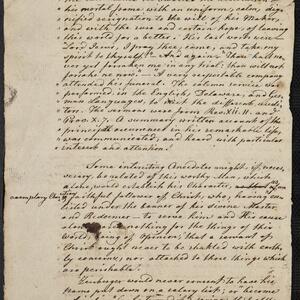 his mortal frame with an uniform, calm, dig-
nified resignation to the will of his Maker,
and with the sure and certain hope, of leaving
this world for a better; His last words were
Lord Jesus, I pray thee, come, and take my
spirit to thyself! And again: Thou hast ne-
ver yet forsaken me in any trial; thou wilt not
forsake me now. A very respectable company
attended his funeral. The solemn service was
performed in the English, Delaware, and Ger-
man languages, to suit the different audi-
tors. The sermon was from Rev. XII. 11. and
Rom X. 7. A summary written account of the
principal occurrences in his remarkable life,
was communicated, and heard with particular
interest and attention.
Some interesting Anecdotes might, if neces-
sary, be related of this worthy Man, which
alone would establish his Character, as that of an
exemplary Chr
faithful follower of Christ; who, having en-
listed under the banner of his divine Master
and Redeemer to and His cause
alone nothing for the things of this
World, being of Opinion, that a Servant of
Christ ought never to be shackled with earth-
ly concerns, nor attached to those things which
are perishable.
Zeisberger would never consent to have his
name put down on a salary list; or become